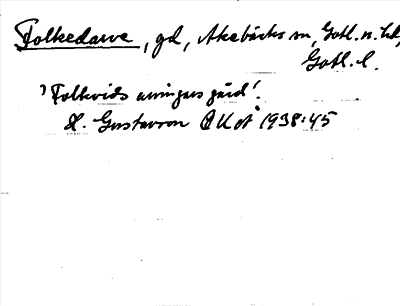 Folkedarve, gd, Akebäcks sn, Gotl. n. hd,
Gotl. l.
'Folkvids arvingars gård'.
H. Gustavson GUot 1938:45